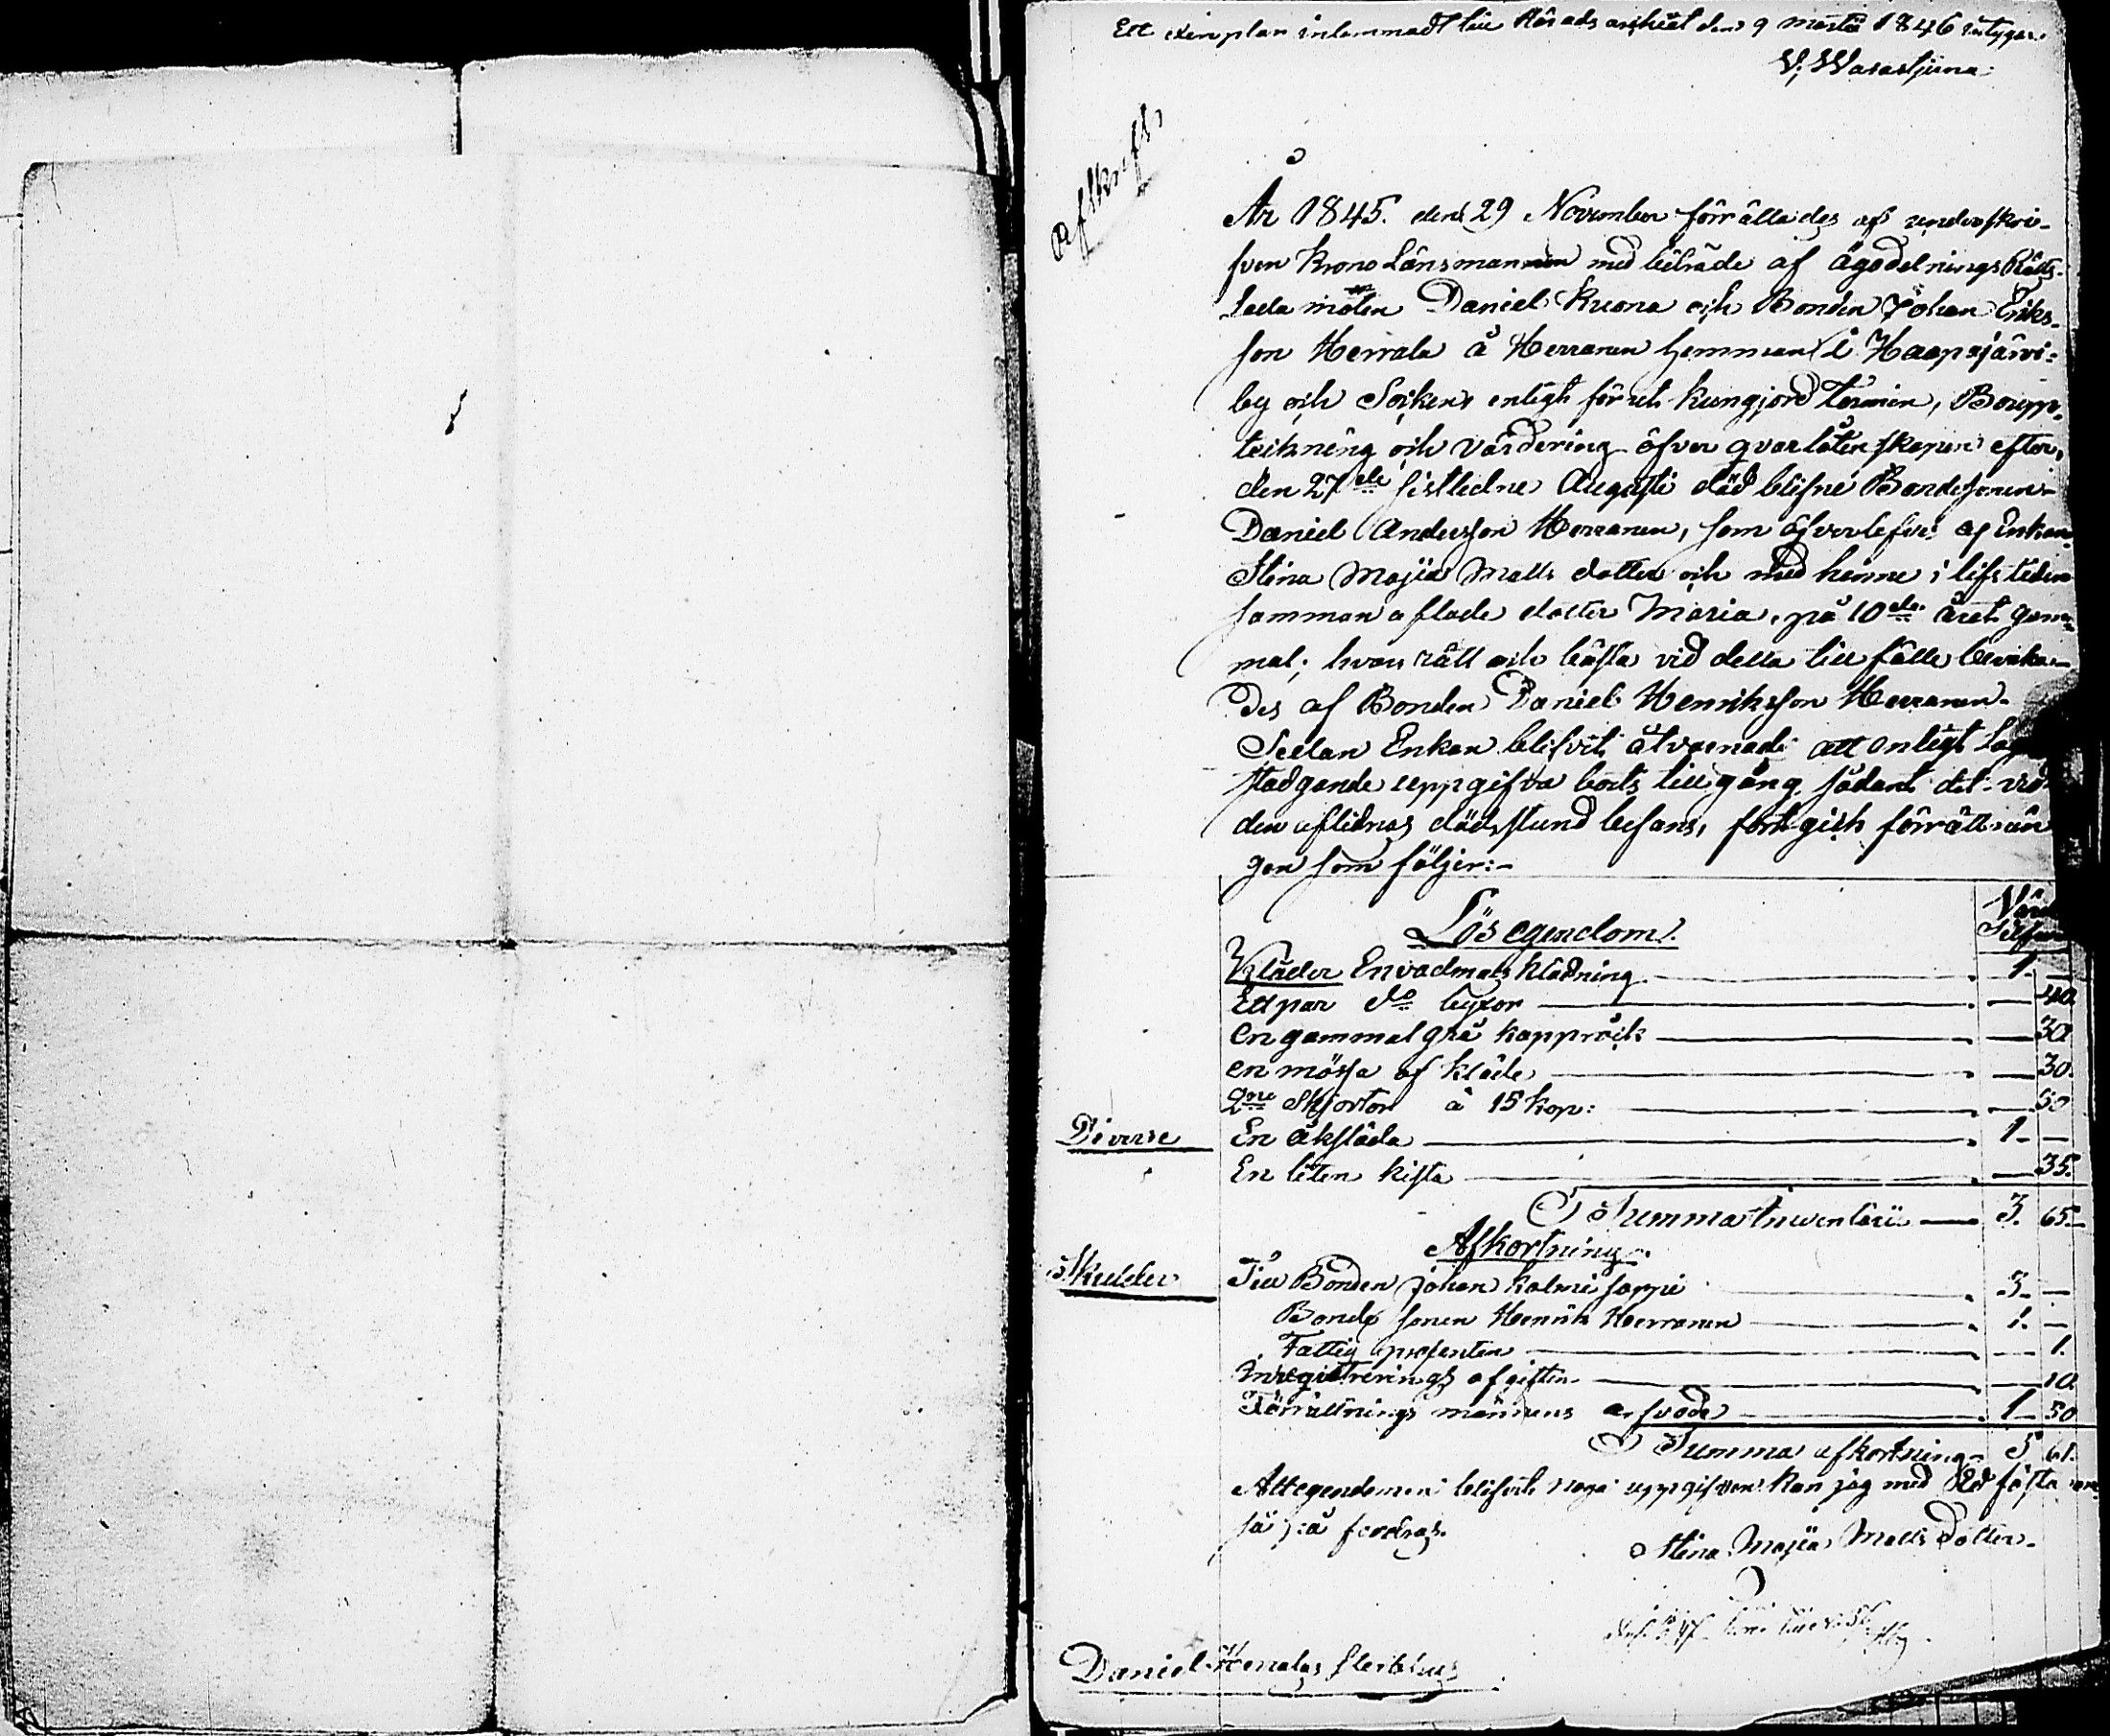 Ett exemplar inlemnadt till Härads arkivet den 9 Martii 1846 intygar
W. Wasastjerna
Afskrift
År 1845. den 29 November förrättades af underskri-
fven Krono Länsmannen med biträde af ÄgodelningsRätts
Ledamoten Daniel Kuona och Bonden Johan Eriks-
son Herrala å Herranen hemman i Haapajärvi
by och Socken enligt förut kungjord termin, Boupp-
teckning och värdering öfver qvarlåtenskapen efter,
den 27de sistledne Augusti död blifne Bondesonen
Daniel Andersson Herranen, som öfverlefves af Enkan
Stina Majia Matts dotter och med henne i lifstiden
samman aflade dotter Maria, på 10de året gam-
mal; hvars rätt och bästa vid detta tillfälle bevaka-
des af Bonden Daniel Henriksson Herranen.
Sedan Enkan blifvit åtvarnad att enligt Lag
stadgande uppgifva boets tillgång sådant det vid
den aflidnes dödsstund befans, fortgick förrättnin
gen som följer:-
Lös egendom.
Kläder En vadmals klädning 1. —
Ett par do byxor — 40.
en gammal grå kapprock — 30
en mössa af kläde — 30.
2ne Skjortor à 15 kop: — 30
Diverse En åksläda 1. —
En liten kista — 35.
Summa Inventarii 3. 65.
Afkortning.
Skulder Till Bonden Johan Kalmisoppi 3. —
Bonde sonen Henrik Herranen 1. —
Fattig procenten — 1.
Inregistrerings afgiften — 10.
Förrättnings männens arfvode 1 50
Summa afkortning 5 61.
Att egendomen blifvit noga uppgifven kan jag med Ed fästa om
så på fordras.
Stina Majia Matts dotter
Daniel Herralas sterbhus